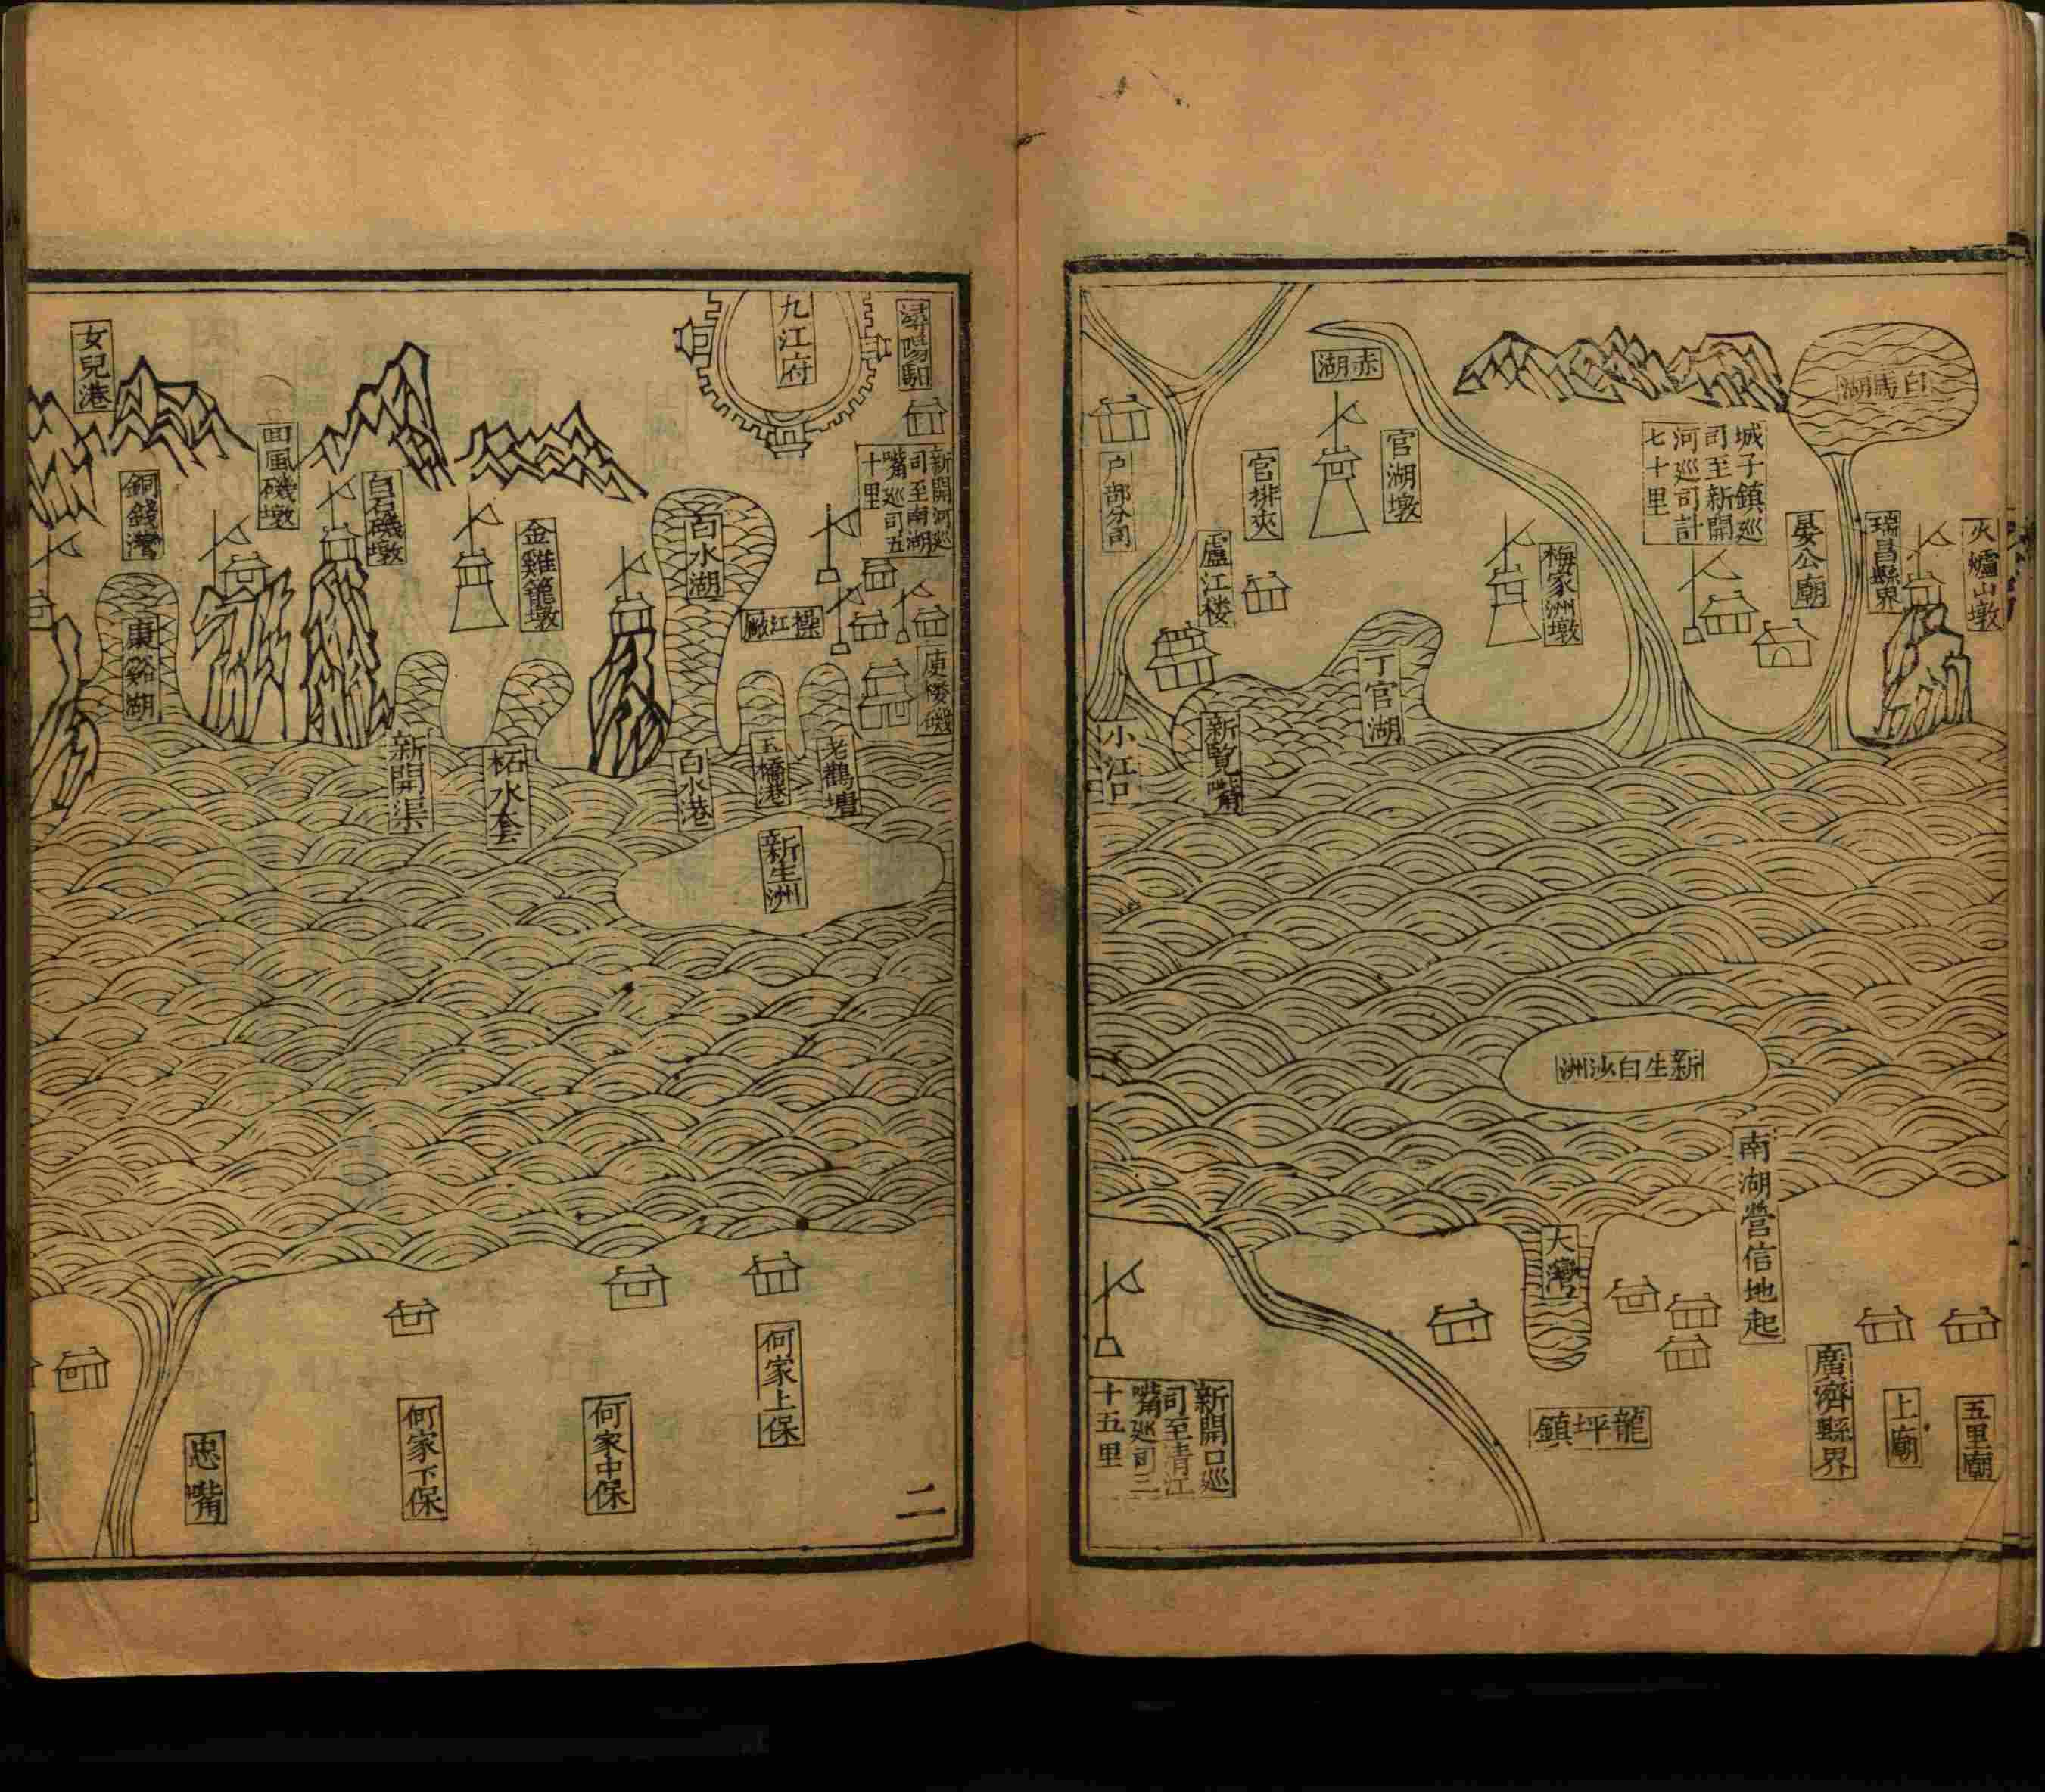 火爐山墩
瑞昌縣界
白馬湖
晏公廟
城子鎮巡
司至新開
河巡司計
七十里
梅家洲墩
赤湖
官湖墩
丁官湖
官排夾
盧江楼
新覧嘴
户部分司
小江口
新生白沙洲
南湖營信地起
五里廟
上廟
廣濟縣界
大灣
龍坪鎮
新開口巡
司至清江
嘴巡司三
十五里
潯陽駅
九江府
新開河巡
司至南湖
嘴巡司五
十里
庾楼磯
操江廠
老鸛塘
五橋港
白水湖
白水港
新生洲
金雞籠墩
柘水套
新開渠
白石磯墩
回風磯墩
銅錢灣
康谿湖
女兒港
何家上保
何家中保
何家下保
忠嘴
二